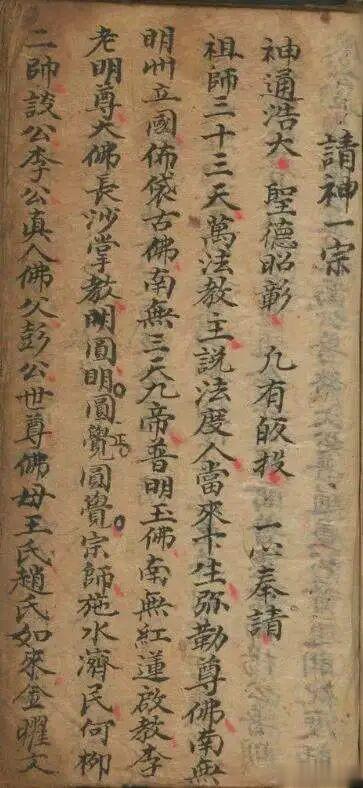 請神一宗
神通浩大 聖德昭彰 凡有皈投 一心奉請
祖師三十三天萬法教主說法度人當來下生弥勒尊佛南無
明州立國佈袋古佛南無三天九帝普明玉佛南無紅蓮啟教李
老明尊大佛長沙掌教明圓明圓覺正圓覺宗師施水濟民何柳
二師談公李公真人佛父彭公世尊佛母王氏趙氏如來金耀文